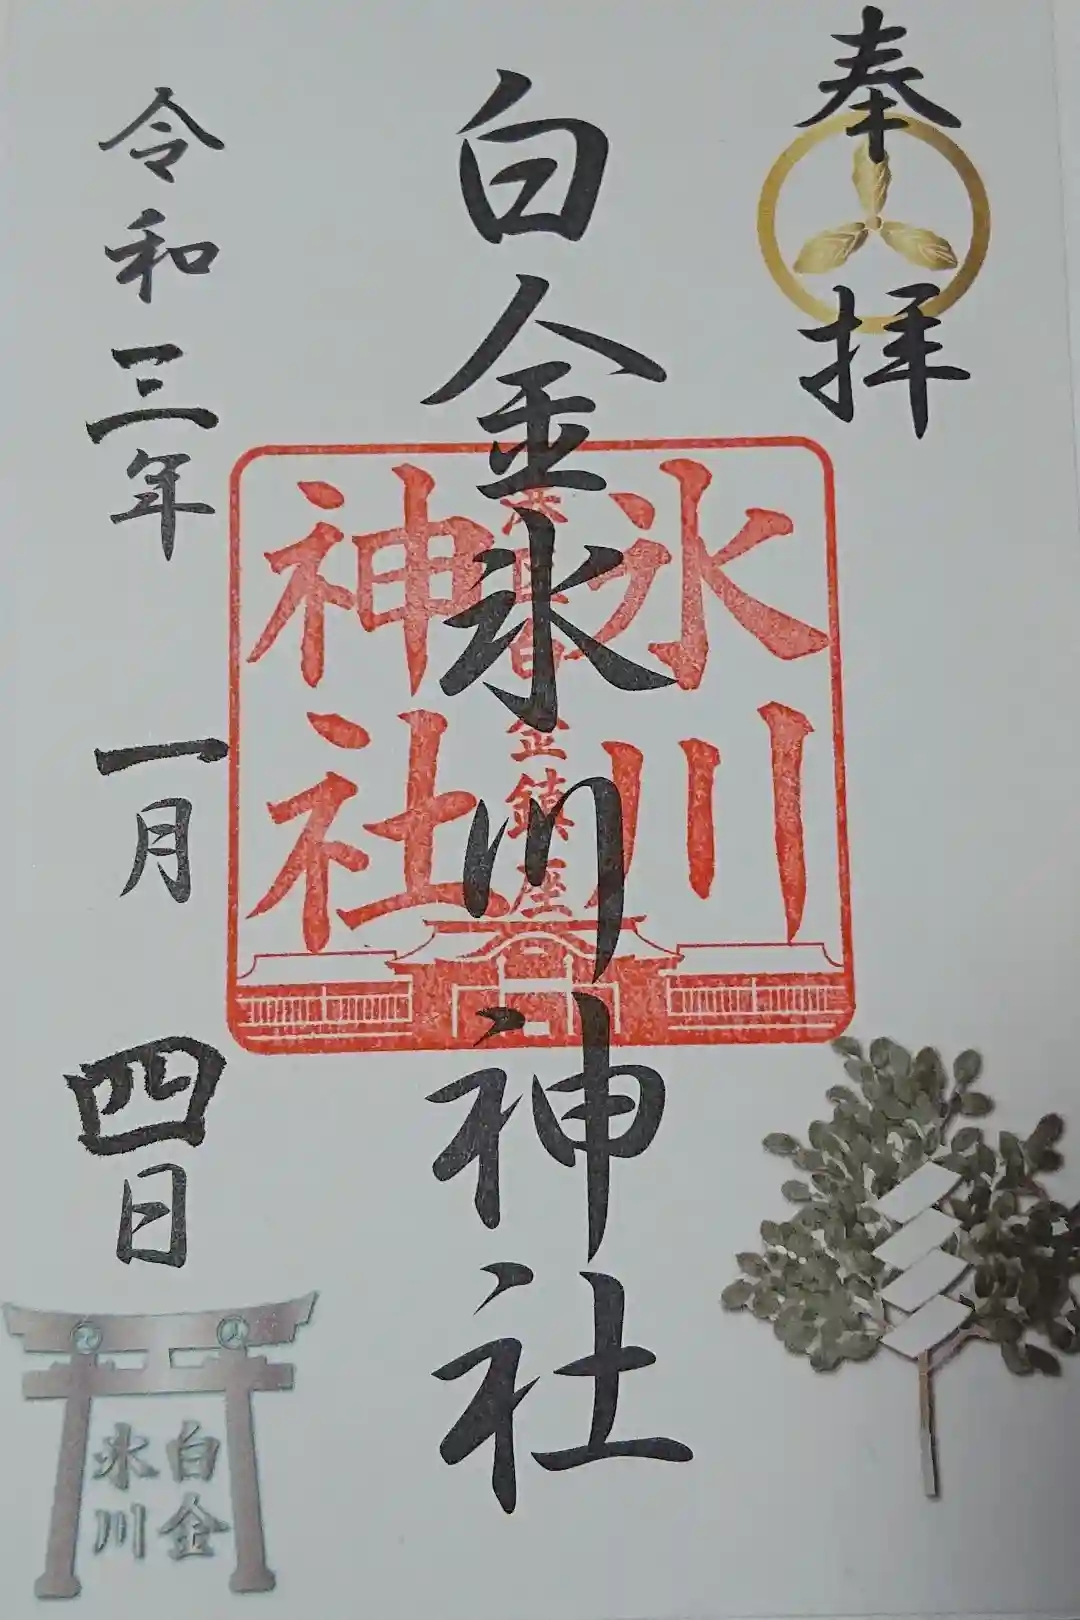 奉拝
白金氷川神社
氷川
神社
金鎮座
令和三年一月四日
白金
氷川